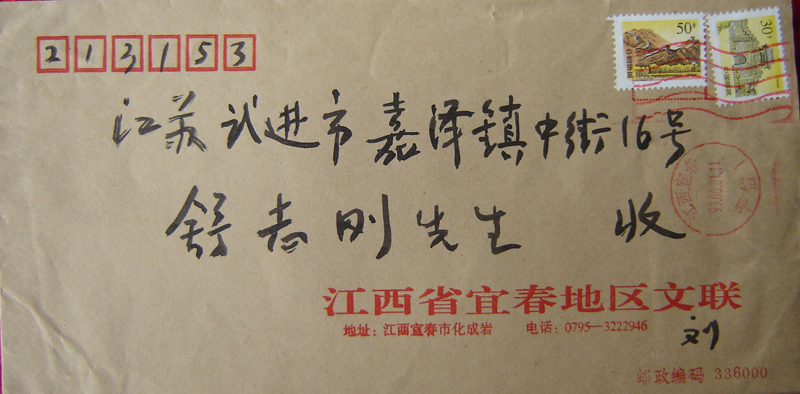 213153
50分
30分
江苏武进市嘉泽镇中街16号
舒志刚先生 收
江西宜春
江西省宜春地区文联
地址：江西宜春市化成岩 电话：0795—3222946
刘
邮政编码 336000